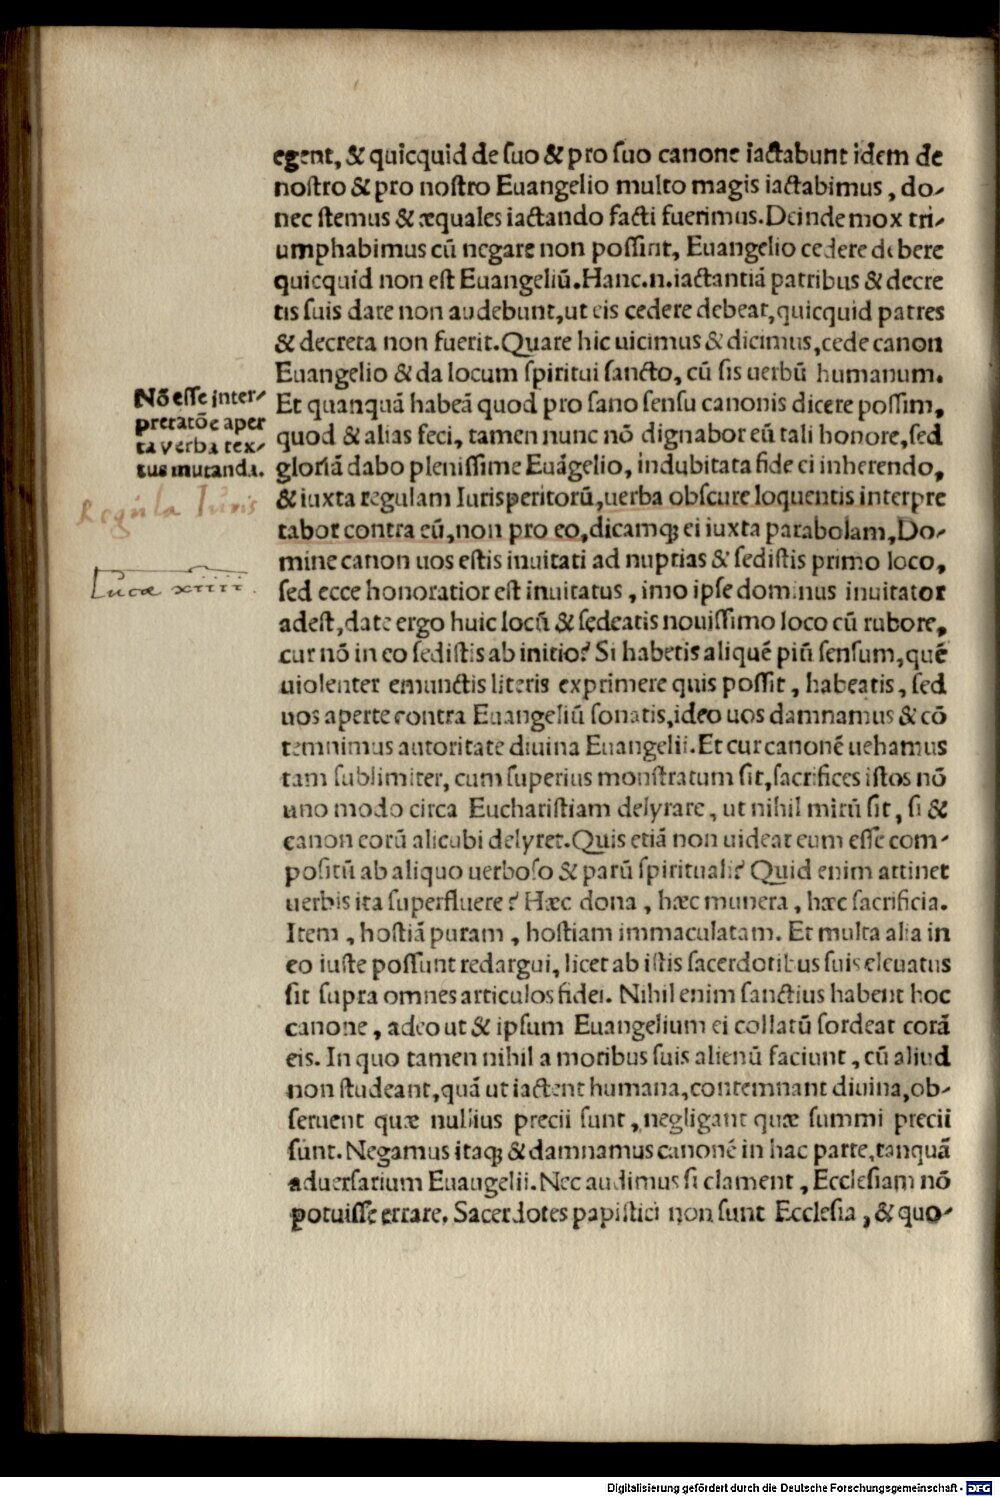 egent, & quicquid de suo & pro suo canone iactabunt idem de
nostro & pro nostro Euangelio multo magis iactabimus, do-
nec stemus & æquales iactando facti fuerimus. Deinde mox tri-
umphabimus cū negare non possint, Euangelio cedere debere
quicquid non est Euangeliū. Hanc .n. iactantiā patribus & decre
tis suis dare non audebunt, ut eis cedere debeat, quicquid patres
& decreta non fuerit. Quare hic uicimus & dicimus, cede canon
Euangelio & da locum spiritui sancto, cū sis uerbū humanum.
Et quanquā habeā quod pro sano sensu canonis dicere possim,
quod & alias feci, tamen nunc nō dignabor eū tali honore, sed
gloriā dabo plenissime Euāgelio, indubitata fide ei inherendo,
& iuxta regulam Iurisperitorū, uerba obscure loquentis interpre
tabor contra eū, non pro eo, dicamqꝫ ei iuxta parabolam, Do-
mine canon uos estis inuitati ad nuptias & sedistis primo loco,
sed ecce honoratior est inuitatus, imo ipse dominus inuitator
adest, date ergo huic locū & sedeatis nouissimo loco cū rubore,
cur nō in eo sedistis ab initio? Si habetis aliquē piū sensum, quē
uiolenter emunctis literis exprimere quis possit, habeatis, sed
uos aperte contra Euangeliū sonatis, ideo uos damnamus & cō
temnimus autoritate diuina Euangelii. Et cur canonē uehamus
tam sublimiter, cum superius monstratum sit, sacrifices istos nō
uno modo circa Eucharistiam delyrare, ut nihil mirū sit, si &
canon eorū alicubi delyret. Quis etiā non uideat eum esse com-
positū ab aliquo uerboso & parū spirituali? Quid enim attinet
uerbis ita superfluere? Hæc dona, hæc munera, hæc sacrificia.
Item, hostiā puram, hostiam immaculatam. Et multa alia in
eo iuste possunt redargui, licet ab istis sacerdotibus suis eleuatus
sit supra omnes articulos fidei. Nihil enim sanctius habent hoc
canone, adeo ut & ipsum Euangelium ei collatū sordeat corā
eis. In quo tamen nihil a moribus suis alienū faciunt, cū aliud
non studeant, quā ut iactent humana, contemnant diuina, ob-
seruent quæ nullius precii sunt, negligant quæ summi precii
sunt. Negamus itaqꝫ & damnamus canonē in hac parte, tanquā
aduersarium Euangelii. Nec audimus si clament, Ecclesiam nō
potuisse errare. Sacerdotes papistici non sunt Ecclesia, & quo-
Nō esse inter-
pretatōe aper
ta verba tex-
tus mutanda.
Regula Iuris
Lucæ xiiii.
Digitalisierung gefördert durch die Deutsche Forschungsgemeinschaft - DFG